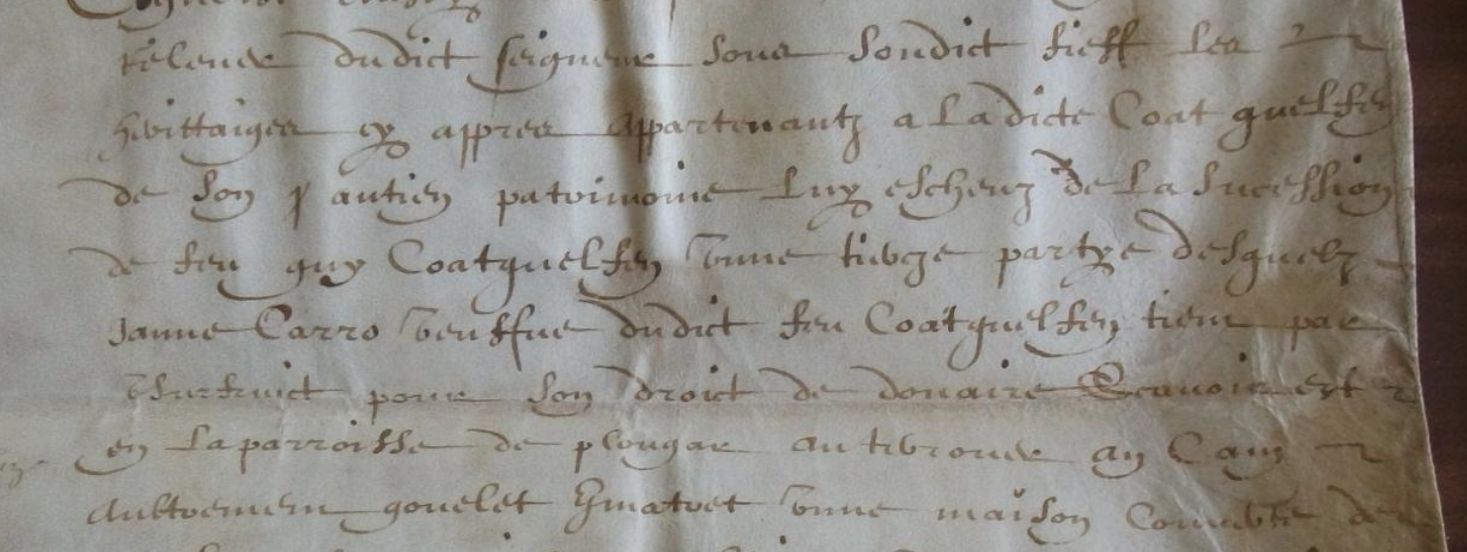 relever dudict seigneur soubz sondict fieff les
herittaiges cy appres appartenantz a ladicte Coatquelfen
de son antien patrimoine luy escheuz de la sucession
de feu guy Coatquelfen une tierze partye desquelz
Janne Carro veuffue dudict feu Coatquelfen tient par
usufruict pour son droict de douaire Scavoir est
en la parroisse de plougar au terrouer an Cam
aultrement gouelet une maison couverte de